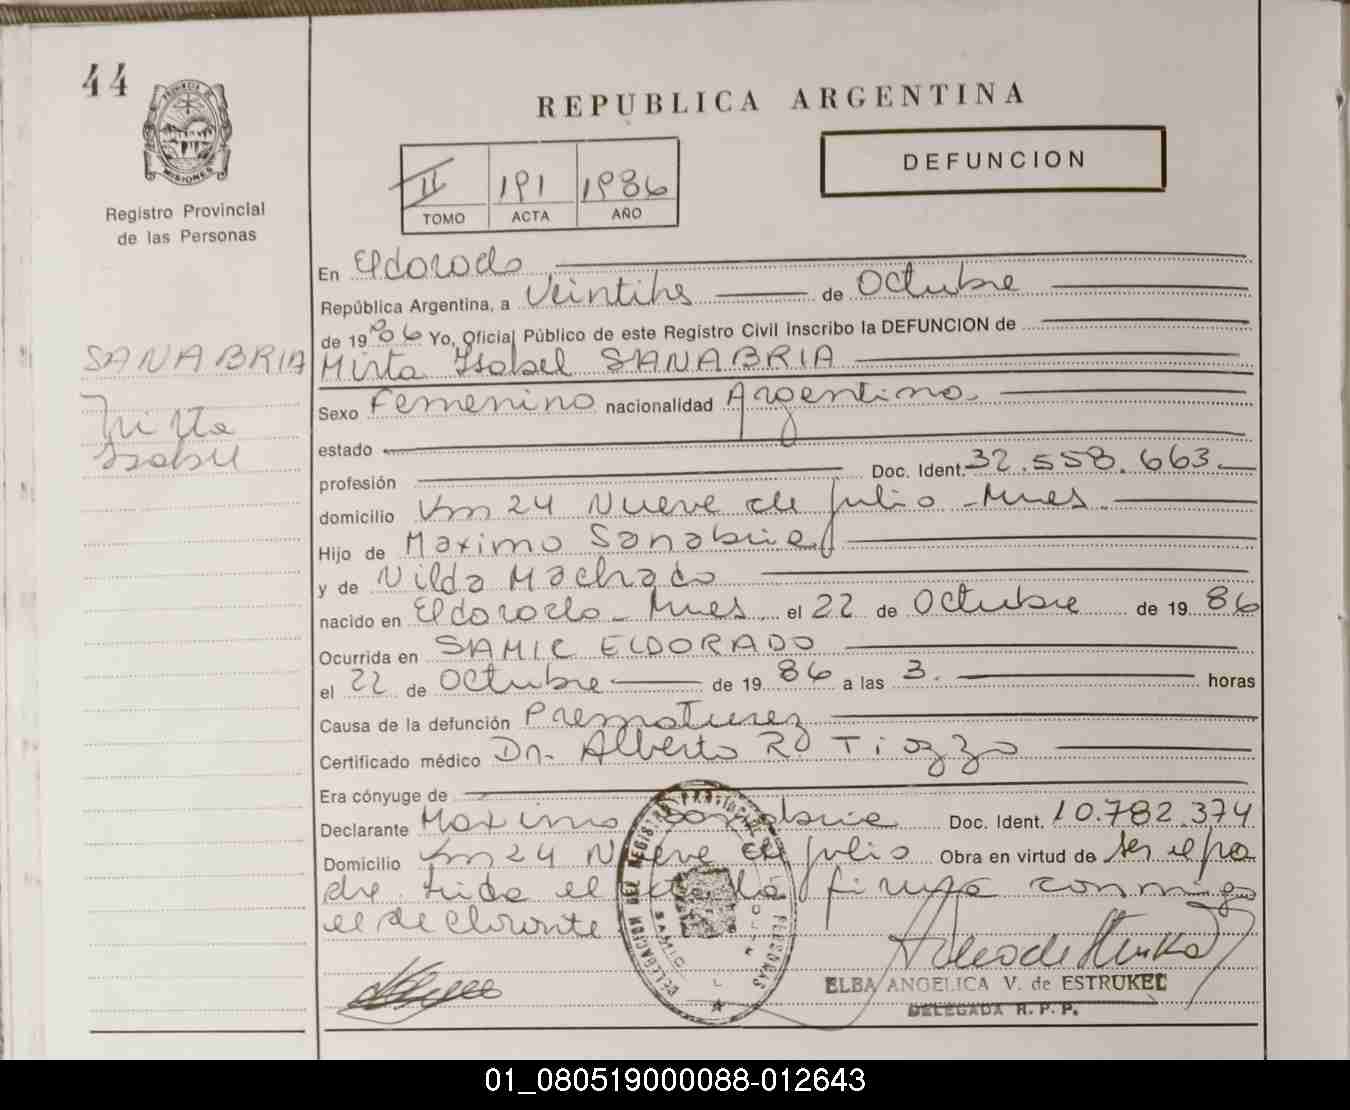 44
PROVINCIA DE
MISIONES
Registro Provincial
de las Personas
REPUBLICA ARGENTINA
DEFUNCION
II 191 1986
TOMO ACTA AÑO
En Eldorado
República Argentina, a Veintitres de Octubre
de 1986 Yo, Oficial Público de este Registro Civil inscribo la DEFUNCION de
SANABRIA Mirta Isabel SANABRIA
Mirta
Isabel
Sexo Femenino nacionalidad Argentina
estado
profesión Doc. Ident. 32.558.663.
domicilio Km 24 Nueve de Julio - Mnes.
Hijo de Maximo Sanabria
y de Nilda Machado
nacido en Eldorado - Mnes. el 22 de Octubre de 1986
Ocurrida en SAMIC ELDORADO
el 22 de Octubre de 1986 a las 3. horas
Causa de la defunción Prematurez
Certificado médico Dr. Alberto R. Tiozzo
Era cónyuge de
Declarante Maximo Sanabria Doc. Ident. 10.782.374
Domicilio Km 24 Nueve de Julio Obra en virtud de ser el pa
dre leida el acta la firma conmigo
el declarante
DELEGACION DEL REGISTRO PROVINCIAL DE LAS PERSONAS
ELBA ANGELICA V. de ESTRUKEL
DELEGADA R. P. P.
01_080519000088-012643